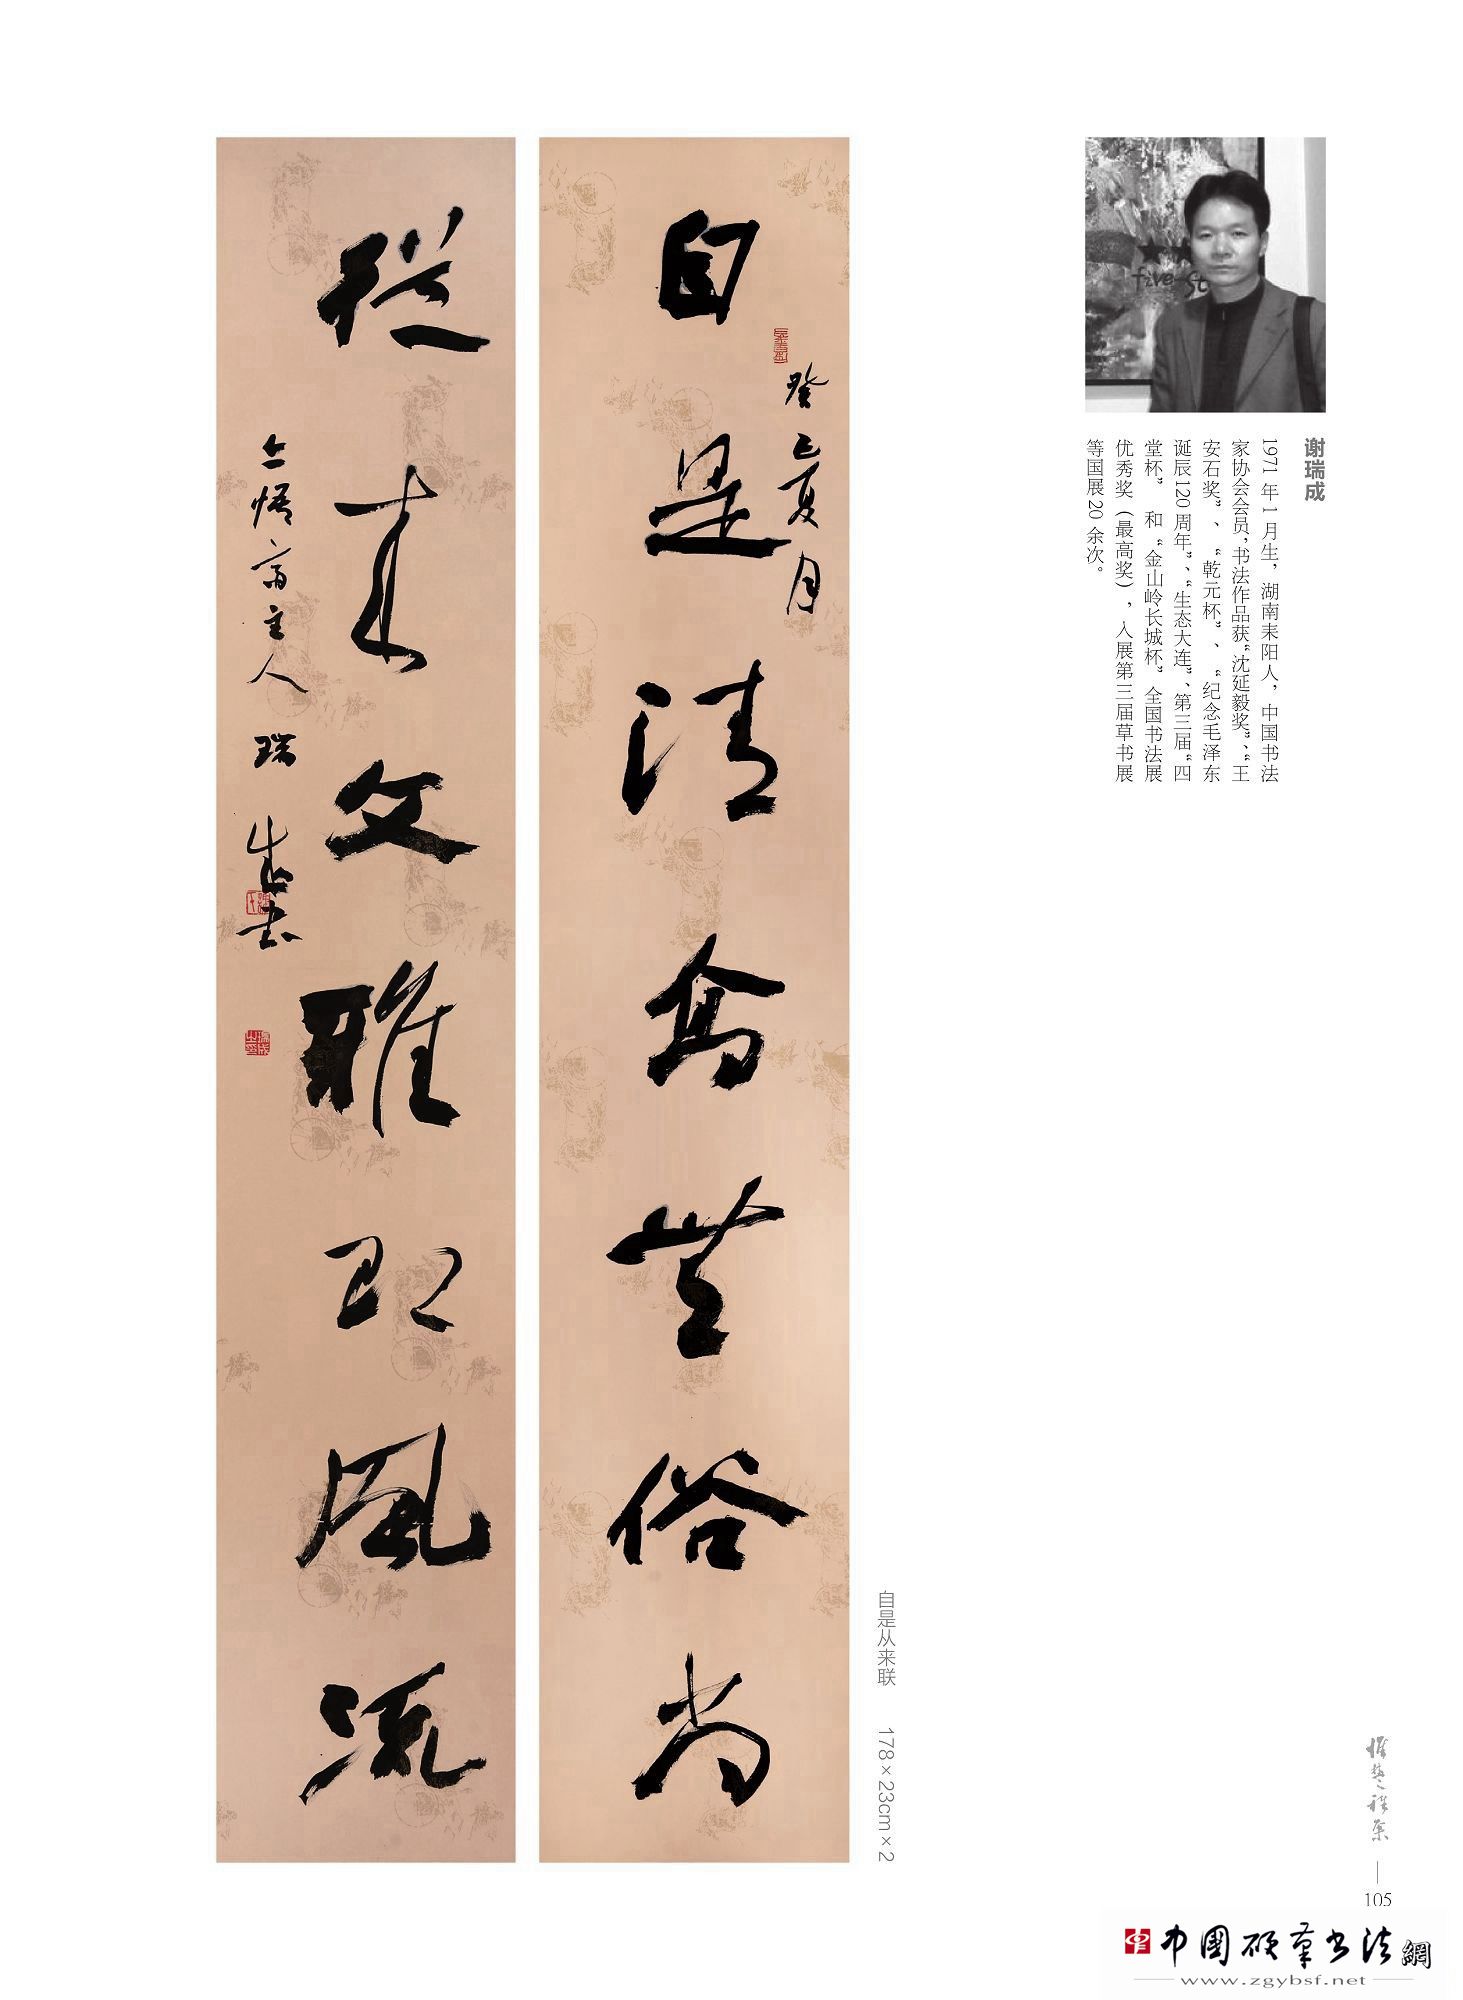 谢瑞成
1971 年 1 月生，湖南耒阳人，中国书法
家协会会员，书法作品获“沈延毅奖”、“王
安石奖”、“乾元杯”、“纪念毛泽东
诞辰120 周年”、“生态大连”、第三届“四
堂杯”和“金山岭长城杯”全国书法展
优秀奖（最高奖），入展第三届草书展
等国展20 余次。
自是清高無俗尚
癸巳夏月
從来文雅即風流
三悟斋主人瑞成书
自是从来联 178×23cm×2
105
中国硬筆书法網
www.zgybsf.net